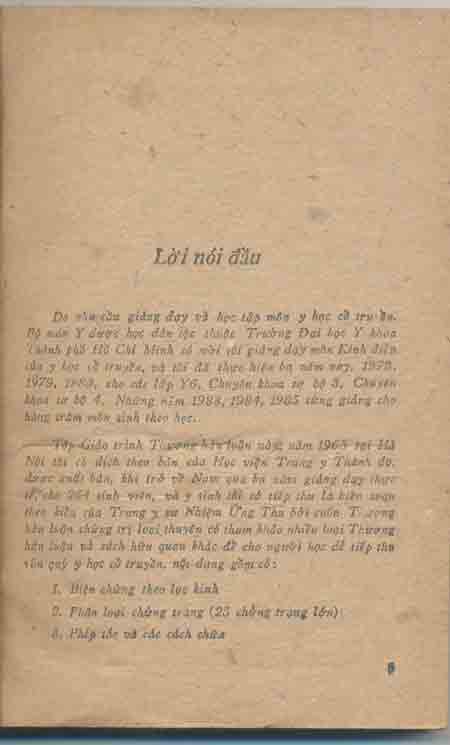 Lời nói đầu
Do nhu cầu giảng dạy và học tập môn y học cổ truyền.
Bộ môn Y dược học dân tộc thuộc Trường Đại học Y khoa
Thành phố Hồ Chí Minh có mời tôi giảng dạy môn Kinh điển
của y học cổ truyền, và tôi đã thực hiện ba năm nay, 1978,
1979, 1980, cho các lớp Y6, Chuyên khoa sơ bộ 3, Chuyên
khoa sơ bộ 4. Những năm 1983, 1984, 1985 cũng giảng cho
hàng trăm môn sinh theo học.
Tập Giáo trình Thương hàn luận này, năm 1965 tại Hà
Nội tôi có dịch theo bản của Học viện Trung y Thành đô,
được xuất bản, khi trở về Nam qua ba năm giảng dạy thực
tế, cho 264 sinh viên, và y sinh tôi có tiếp thu là biên soạn
theo kiểu của Trung y sư Nhiệm Ứng Thu bởi cuốn Thương
hàn luận chứng trị loại thuyên có tham khảo nhiều loại Thương
hàn luận và sách hữu quan khác để cho người học dễ tiếp thu
vốn quý y học cổ truyền, nội dung gồm có:
1. Biện chứng theo lục kinh
2. Phân loại chứng trạng (23 chứng trạng lớn)
3. Phép tắc và các cách chữa